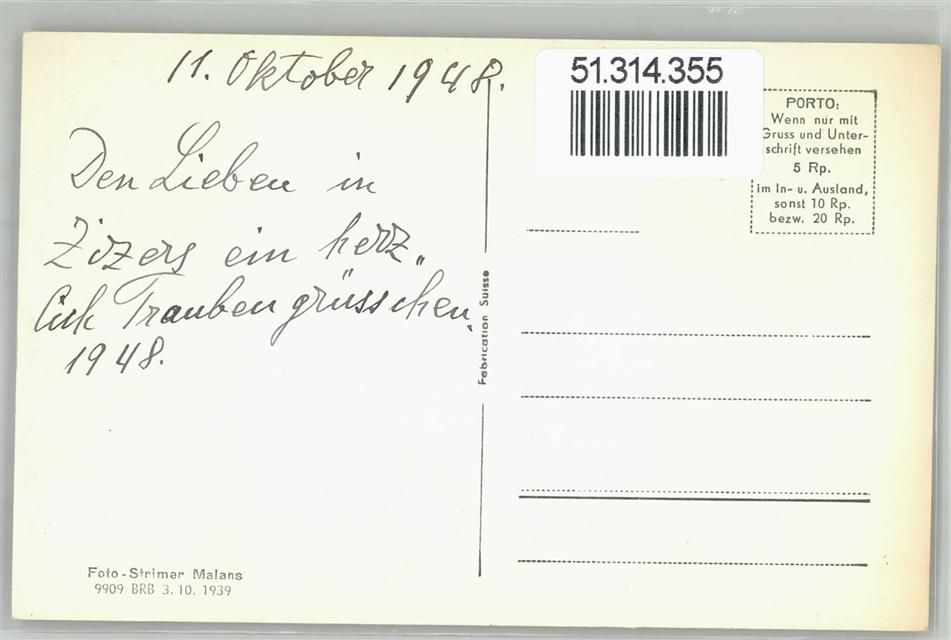 11. Oktober 1948.
Den Lieben in
Zizers ein herz„
lich Traubengrüsschen.
1948.
Foto-Strimer Malans
9909 BRB 3.10.1939
Fabrication Suisse
51.314.355
PORTO:
Wenn nur mit
Gruss und Unter-
schrift versehen
5 Rp.
im In- u. Ausland,
sonst 10 Rp.
bezw. 20 Rp.